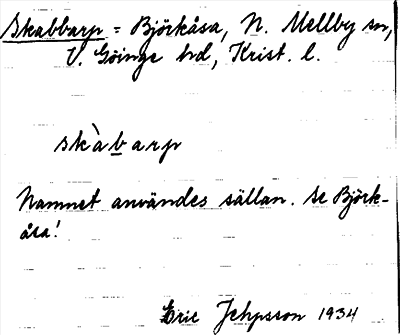 Skabbarp = Björkåsa, N. Mellby sn,
V. Göinge hd, Krist. l.
skàbarp
Namnet användes sällan. Se Björk-
åsa!
Eric Jehpsson 1934